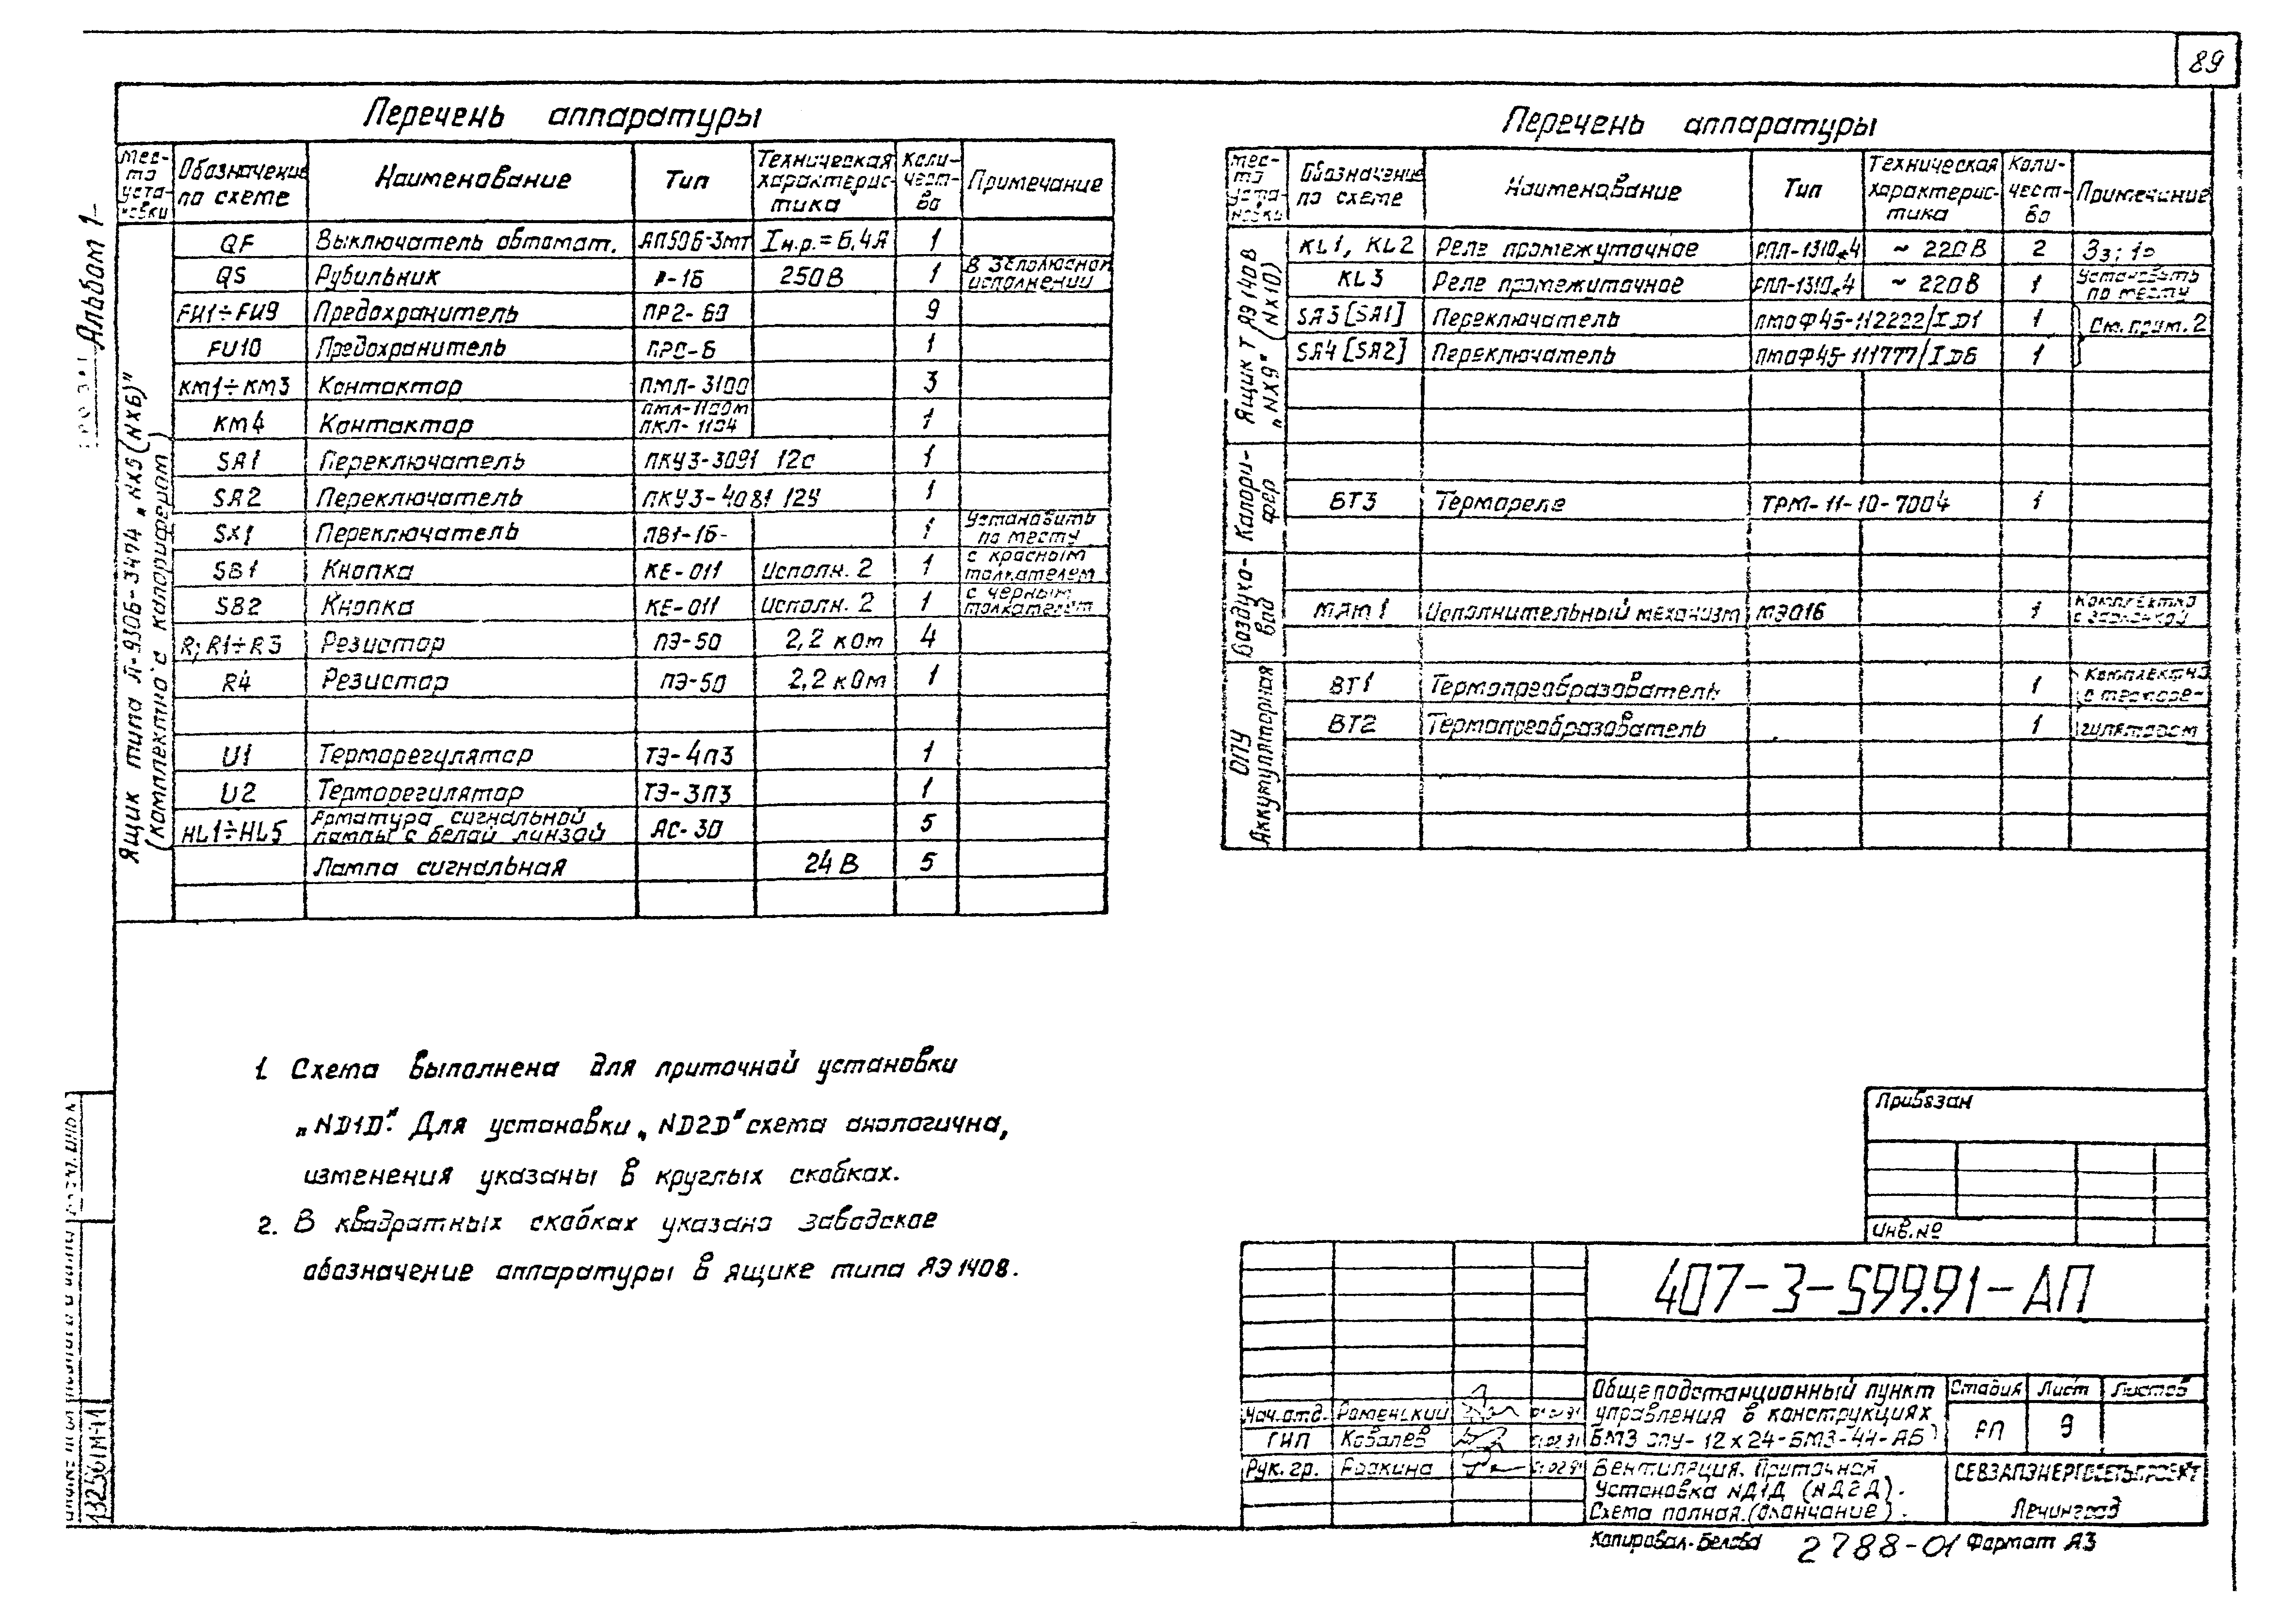 89
Альбом 1
Перечень аппаратуры
Место установки | Обозначение по схеме | Наименование | Тип | Техническая характеристика | Количество | Примечание
Ящик типа Я-9306-3474 „NХ5(NХ6)"
(комплектно с калорифером)
QF | Выключатель автомат. | АП50Б-3МТ | Iн.р.= 6,4А | 1
QS | Рубильник | 250В | 1 | исполнении
FU1÷FU9 | Предохранитель | ПР2-60 | 9
FU10 | Предохранитель | ПРС-6 | 1
КМ1÷КМ3 | Контактор | ПМЛ-3100 | 3
КМ4 | Контактор | ПМЛ-1100М ПКЛ-1104 | 1
SA1 | Переключатель | ПКУ3-3091 12с | 1
SA2 | Переключатель | ПКУ3-4081 12У | 1
SX1 | Переключатель | ПВ1-16- | 1 | Установить по месту
SB1 | Кнопка | КЕ-011 | Исполн. 2 | 1 | с красным толкателем
SB2 | Кнопка | КЕ-011 | Исполн. 2 | 1 | с черным толкателем
R; R1÷R3 | Резистор | ПЭ-50 | 2,2 кОм | 4
R4 | Резистор | ПЭ-50 | 2,2 кОм | 1
U1 | Терморегулятор | ТЭ-4П3 | 1
U2 | Терморегулятор | ТЭ-3П3 | 1
HL1÷HL5 | Арматура сигнальной лампы с белой линзой | АС-30 | 5
Лампа сигнальная | 24 В | 5
Перечень аппаратуры
Место установки | Обозначение по схеме | Наименование | Тип | Техническая характеристика | Количество | Примечание
„NХ9" (NХ10)
KL1, KL2 | Реле промежуточное | ~ 220В | 2
KL3 | Реле промежуточное | ~ 220В | 1 | Установить по месту
SA3 [SA1] | Переключатель | ПМОФ45-112222/I Д1 | 1 | См. прим. 2
SA4 [SA2] | Переключатель | ПМОФ45-111777/I Д6 | 1
Калорифер
ВТ3 | Термореле | ТРМ-11-10-7004 | 1
Воздуховод
МАМ1 | Исполнительный механизм | МЭО16 | 1 | Комплектно с заслонкой
ОПУ
Аккумуляторная
ВТ1 | Термопреобразователь | 1 | Комплектно с терморе-
ВТ2 | Термопреобразователь | 1 | гулятором
1. Схема выполнена для приточной установки
„NД1Д". Для установки „NД2Д" схема аналогична,
изменения указаны в круглых скобках.
2. В квадратных скобках указано заводское
обозначение аппаратуры в ящике типа ЯЭ1408.
Привязан
Инв.№
407-3-599.91-АП
Нач.отд. Роменский
ГИП Ковалев
Рук. гр.
Общеподстанционный пункт
управления в конструкциях
БМЗ ОПУ-12х24-БМЗ-44-АБ
Стадия | Лист | Листов
РП | 9
Вентиляция. Приточная
установка NД1Д (NД2Д).
Схема полная. (Окончание).
СЕВЗАПЭНЕРГОСЕТЬПРОЕКТ
Ленинград
Копировал-Белова 2788-01 Формат А3